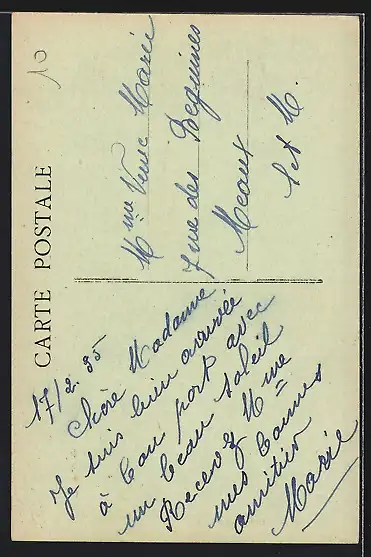 10
CARTE POSTALE
17/2.35
Chère Madame
Je suis bien arrivée
à bon port avec
un beau soleil
Recevez Mme
mes bonnes
amitiés
Marie
Mme Veuve Marié
7 rue des Beguines
Meaux
S et M.